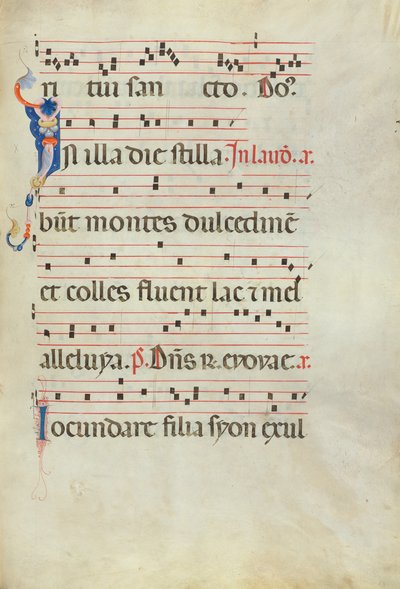 ri tui san cto. Do⁹.
In illa die stilla. In laud̄. a̅.
būt montes dulcedinē
et colles fluent lac ⁊ mel
alleluya. p̄. Dn̄s r̄. evovae. a̅.
Iocundare filia syon exul